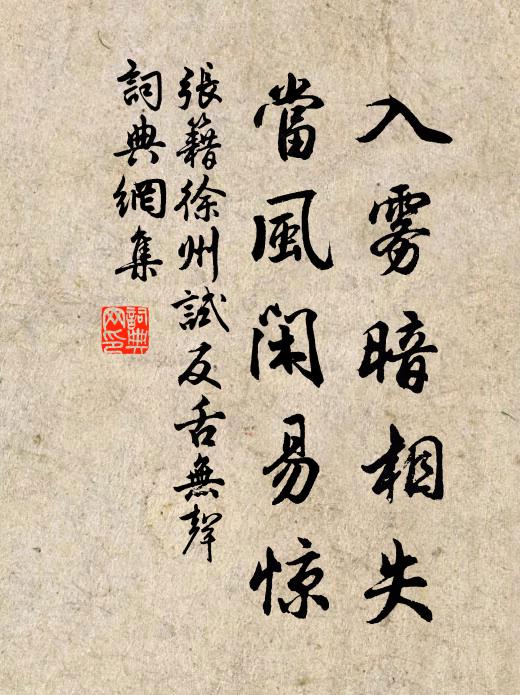 入雾暗相失
當風閑易惊
張籍徐州試反舌無聲
詞典網集
詞典
网印